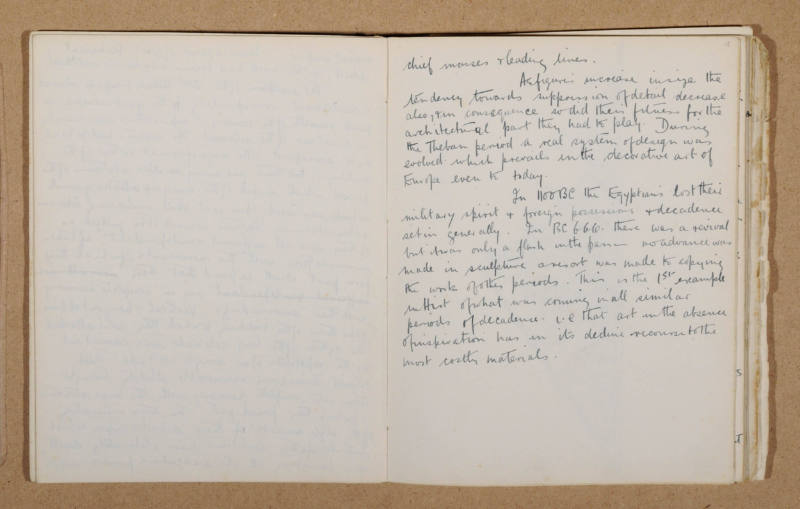 chief masses & leading lines.
As figures increase in size the
tendency towards suppression of detail decrease
also, & in consequence so did their fitness for the
architectural part they had to play. During
the Theban period a real system of design was
evolved which prevails in the decorative art of
Europe even to today.
In 1100 BC the Egyptians lost their
military spirit & foreign possessions & decadence
set in generally. In BC 666 there was a revival
but it was only a flash in the pan no advance was
made in sculpture a resort was made to copying
the work of other periods. This is the 1st example
in Hist of what was coming in all similar
periods of decadence. i.e that art in the absence
of inspiration has in its decline recourse to the
most costly materials.